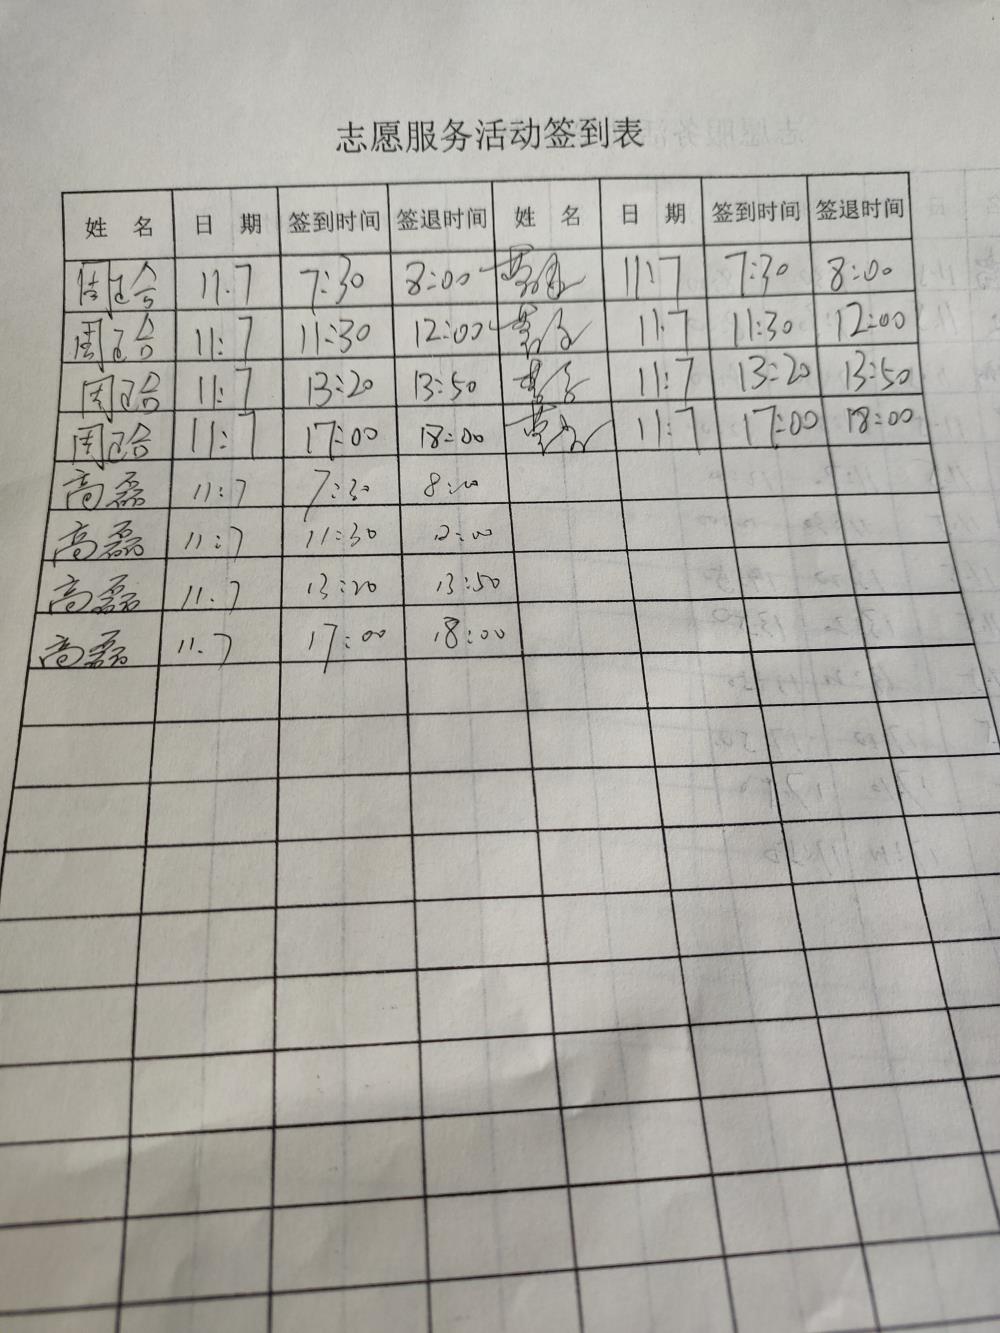 志愿服务活动签到表
姓 名 日 期 签到时间 签退时间 姓 名 日 期 签到时间 签退时间
周 11.7 7:30 8:00 11:7 7:30 8:00
周 11:7 11:30 12:00 11.7 11:30 12:00
周 11:7 13:20 13:50 11:7 13:20 13:50
周 11:7 17:00 18:00 11:7 17:00 18:00
高磊 11:7 7:30 8:00
高磊 11:7 11:30 12:00
高磊 11.7 13:20 13:50
高磊 11.7 17:00 18:00